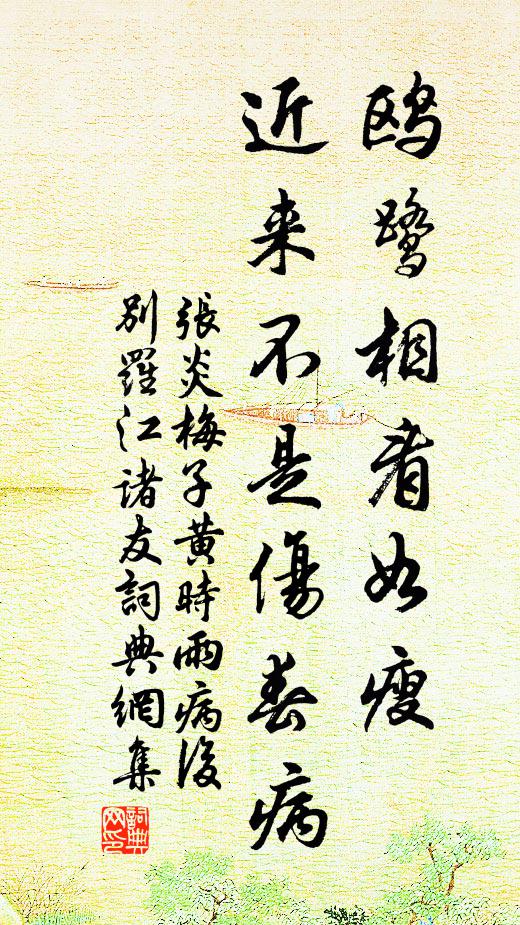 鸥鹭相看如瘦
近来不是傷春病
張炎梅子黄時雨病後
别羅江诸友詞典網集
詞典网印